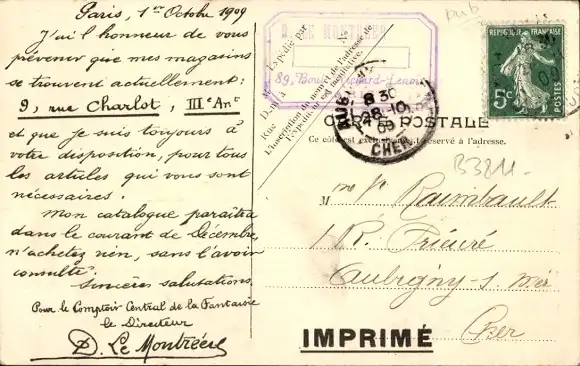 Paris, 1er Octobre 1909
J'ai l'honneur de vous
prévenir que mes magasins
se trouvent actuellement :
9, rue Charlot, IIIe Arrt
et que je suis toujours à
votre disposition, pour tous
les articles qui vous sont
nécessaires.
Mon catalogue paraîtra
dans le courant de Décembre,
n'achetez rien, sans l'avoir
consulté.
Sincères salutations.
Pour le Comptoir Central de la Fantaisie
le Directeur
D. Le Montréere
D. LE MONTREER
89, Boul Richard-Lenoir
Expédié par
Rue
L'inscription du nom et de l'adresse de
l'expéditeur est facultative.
RÉPUBLIQUE FRANÇAISE
5c
POSTES
8 30
28-10
09
CHER
CARTE POSTALE
Ce côté est exclusivement réservé à l'adresse.
B3211-
M me Ve Raimbault
1 R. Prieuré
Aubigny-s. Nère
Cher
IMPRIMÉ